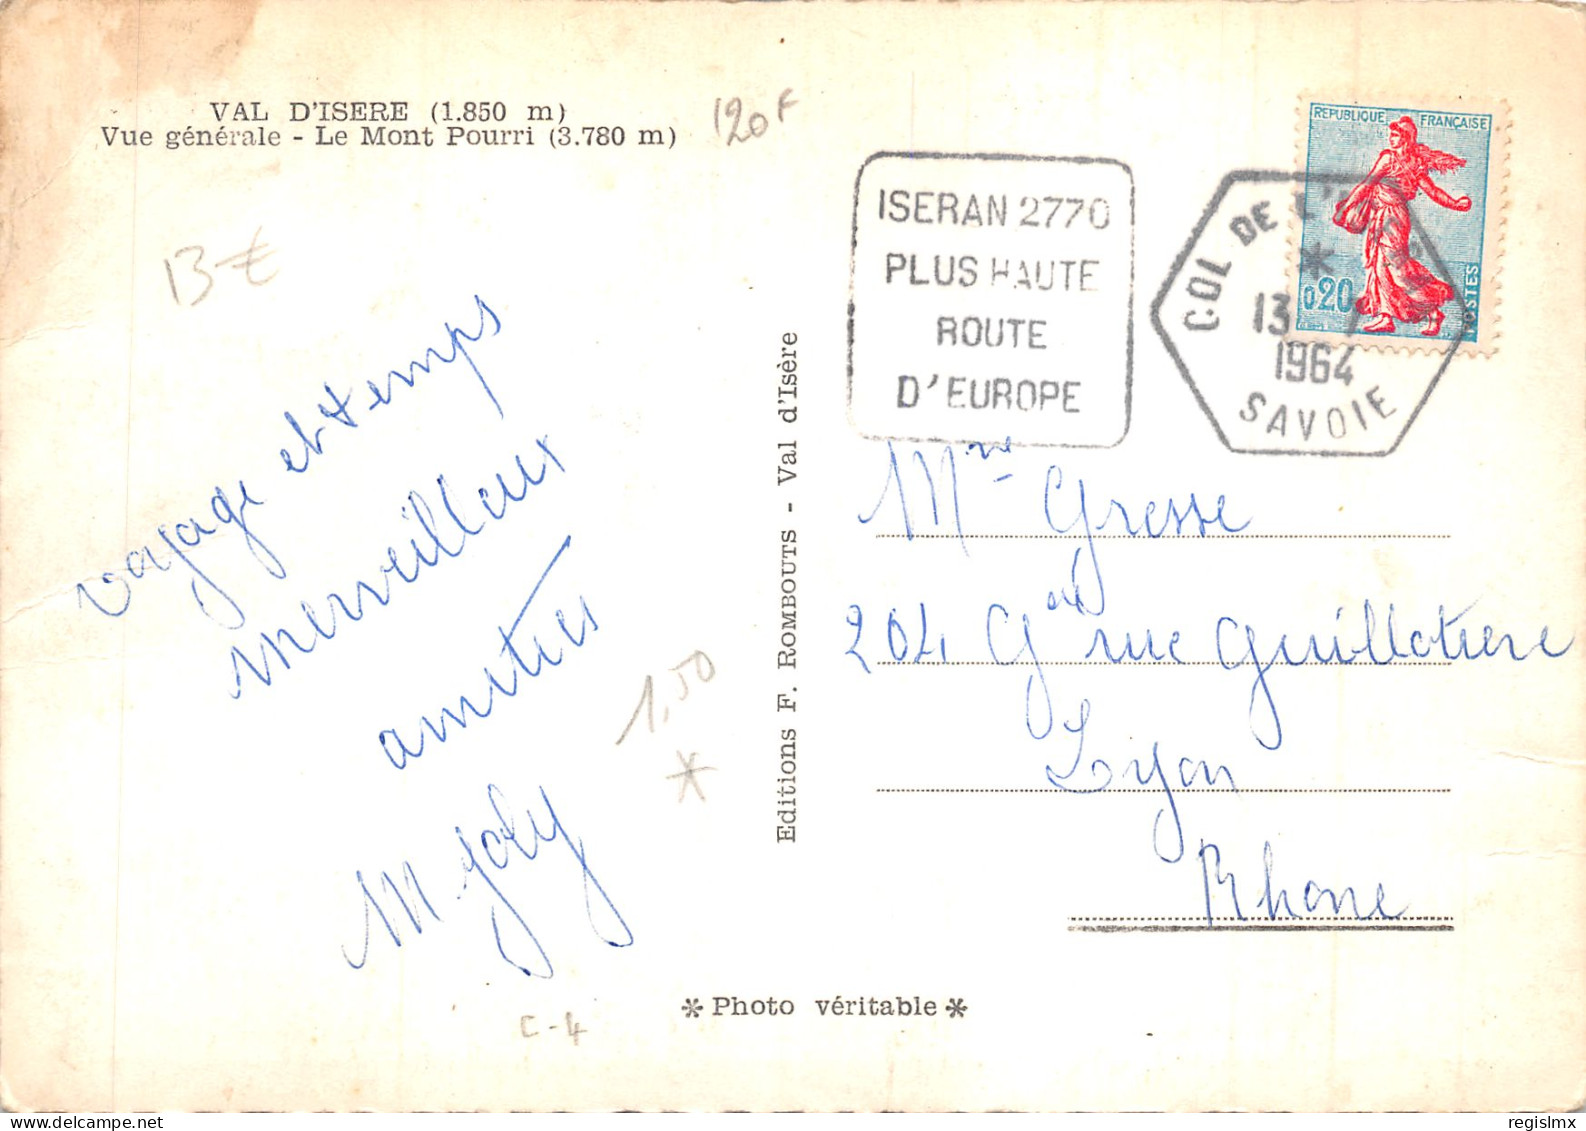 VAL D'ISERE (1.850 m)
Vue générale - Le Mont Pourri (3.780 m)
120F
13 €
voyage et temps
merveilleux
amitiés
M Joly
1,50
*
C-4
Editions F. ROMBOUTS - Val d'Isère
* Photo véritable *
ISERAN 2770
PLUS HAUTE
ROUTE
D'EUROPE
COL DE L'ISERAN
*
13
1964
SAVOIE
REPUBLIQUE FRANÇAISE
0,20
POSTES
Mme Gresse
204 Gde rue Guillotiere
Lyon
Rhone
delcampe.net
regislmx